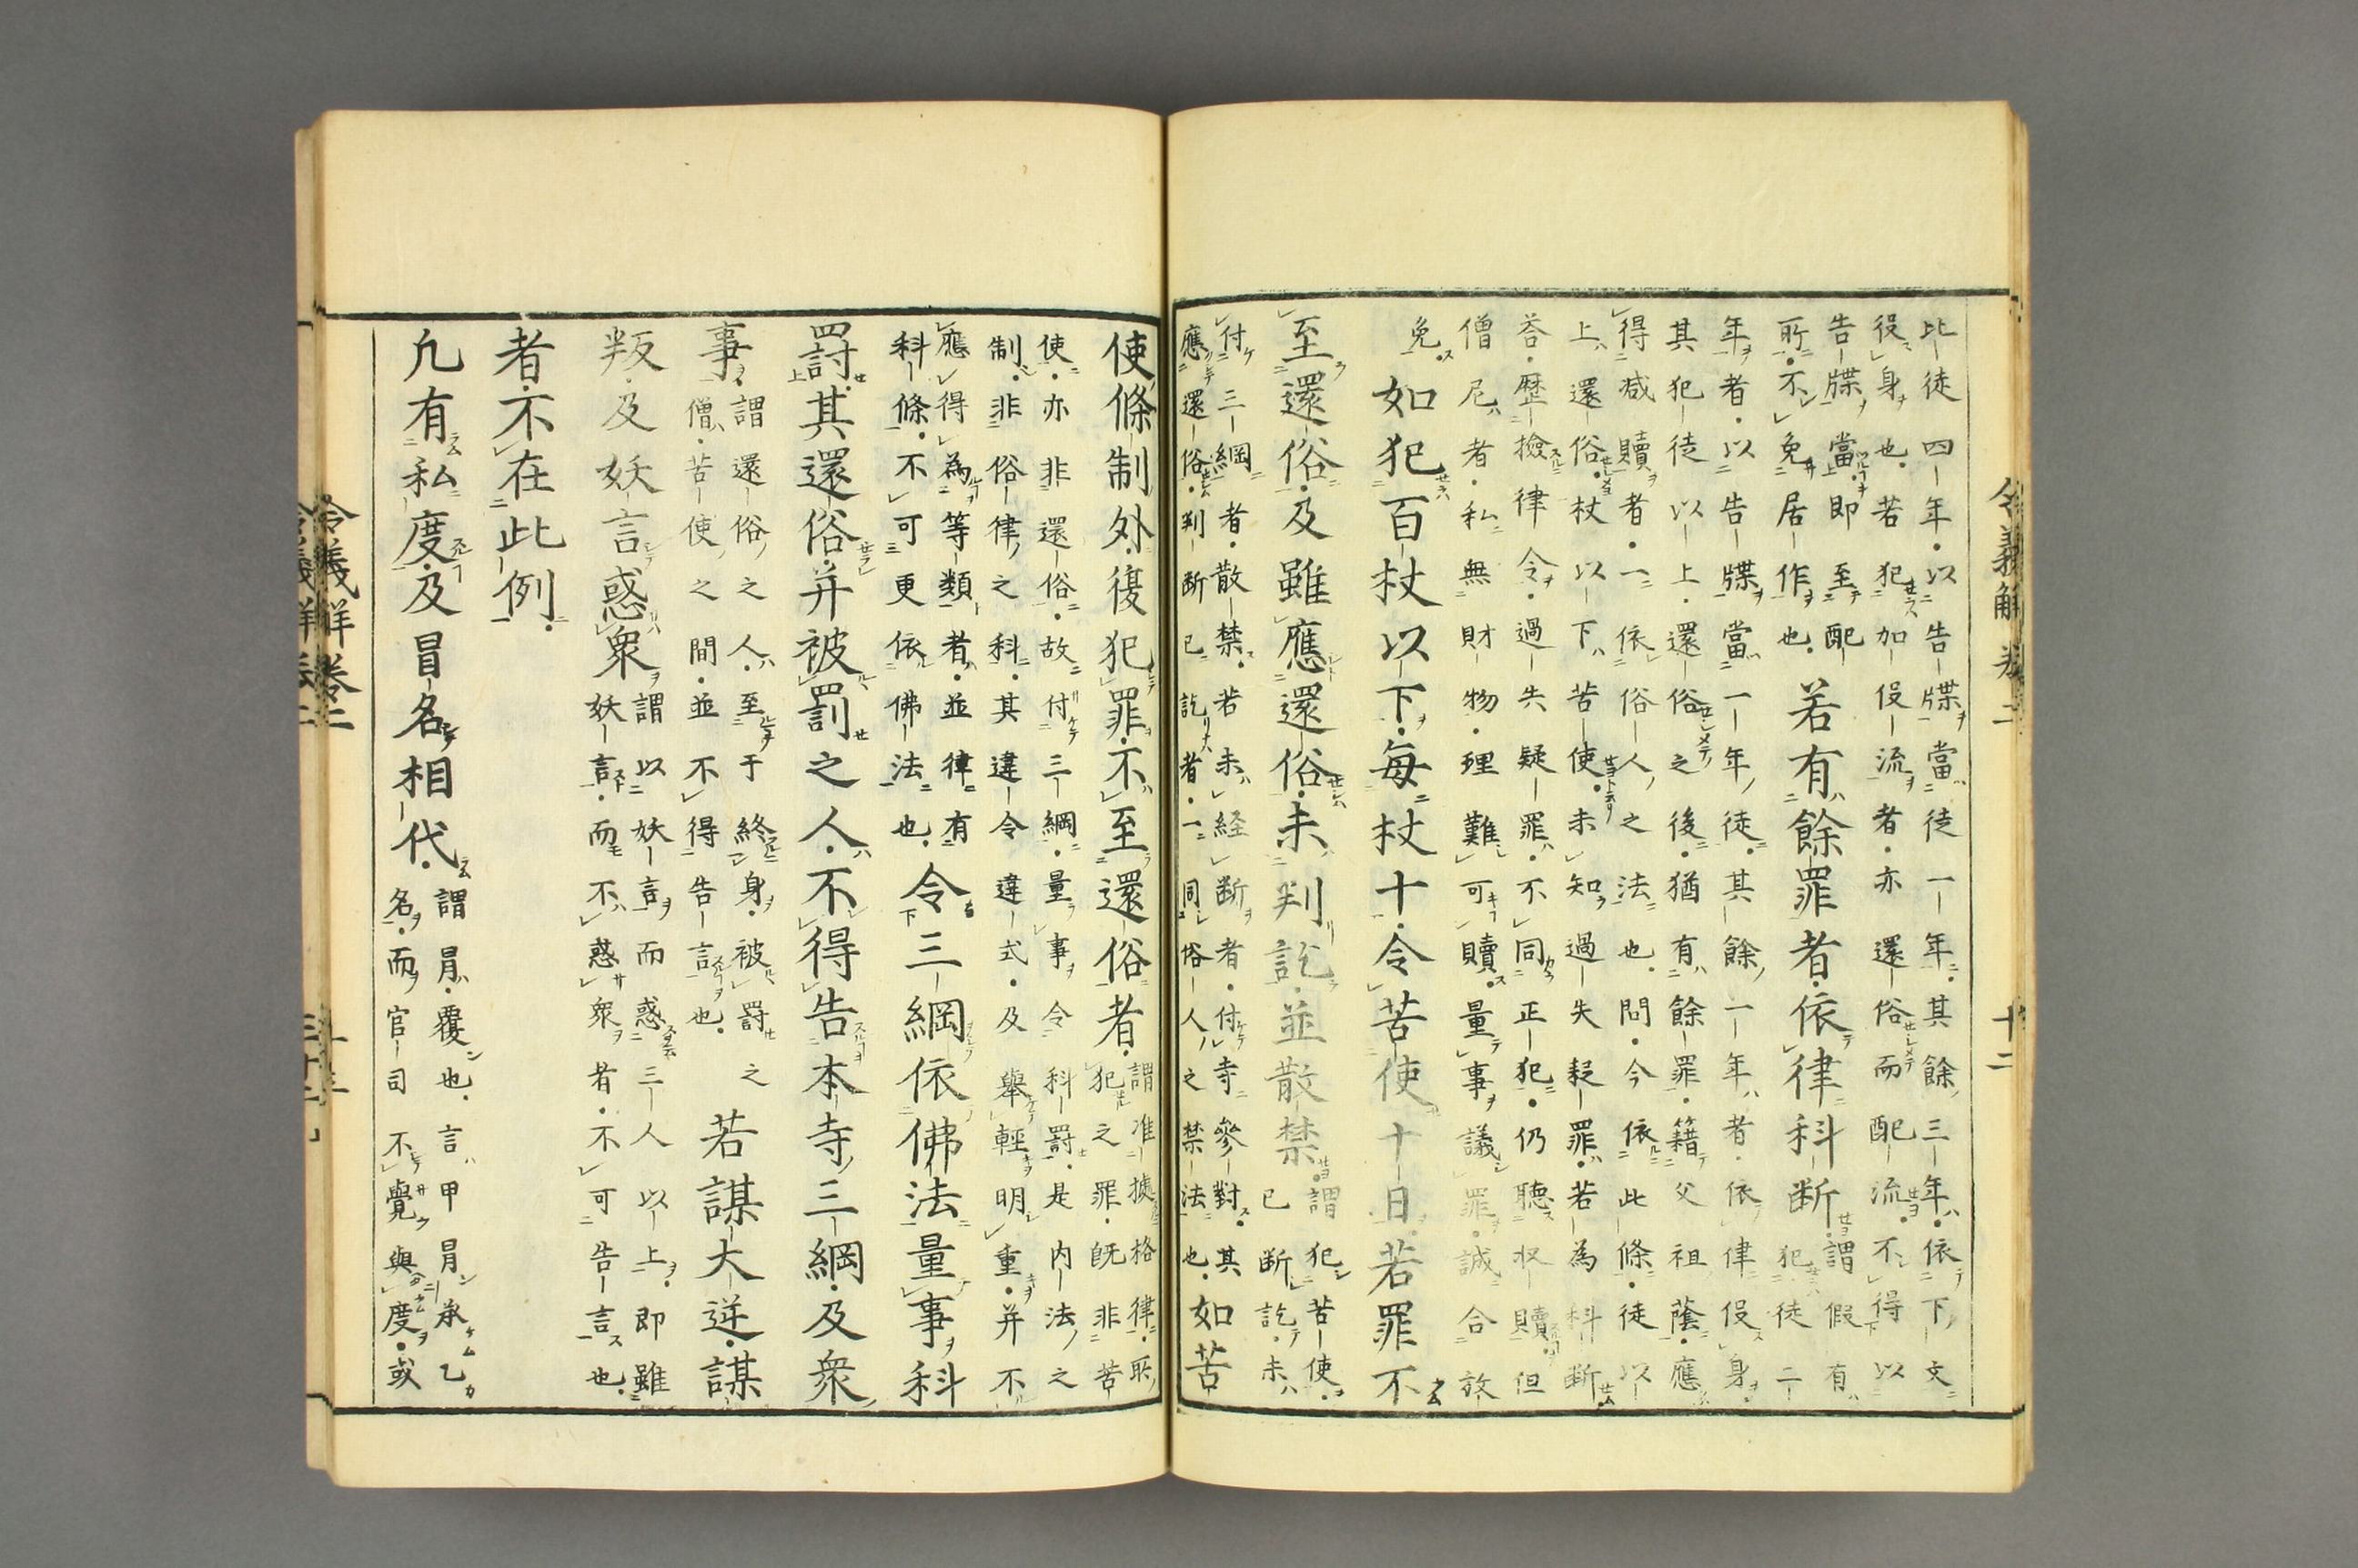 令義解卷二 十二
比徒四年以告牒當徒一年其餘三年依下文
役身也若犯加役流者亦還俗而配流不得以
告牒當即至配
所不免居作也
若有餘罪者依律科断
謂假有
犯徒二
年者以告牒當一年徒其餘一年者依律役身
其犯徒以上還俗之後猶有餘罪籍父祖蔭應
得减贖者一依俗人之法也問今依此條徒以
上還俗杖以下苦使未知過失疑罪若為科断
荅歴撿律令過失疑罪不同正犯仍聽收贖但
僧尼者私無財物理難可贖量事議罪誠合放
免
如犯百杖以下毎杖十令苦使十日若罪不
至還俗及雖應還俗未判訖並散禁
謂犯苦使
已断訖未
付三綱者散禁若未経断者付寺參對其
應還俗判断已訖者一同俗人之禁法也
如苦
使條制外復犯罪不至還俗者
謂准據格律耴
犯之罪既非苦
使亦非還俗故付三綱量事令科罰是内法之
制非俗律之科其違令違式及舉輕明重并不
應得為等類者並律有
科條不可更依佛法也
令三綱依佛法量事科
罰其還俗并被罰之人不得告本寺三綱及衆
事
謂還俗之人至于終身被罰之
僧苦使之間並不得告言也
若謀大逆謀
叛及妖言惑衆
謂以妖言而惑三人以上即雖
妖言而不惑衆者不可告言也
者不在此例
凢有私度及冒名相代
謂冐覆也言甲冐承乙
名而官司不覺與度或
令義解卷二 十三